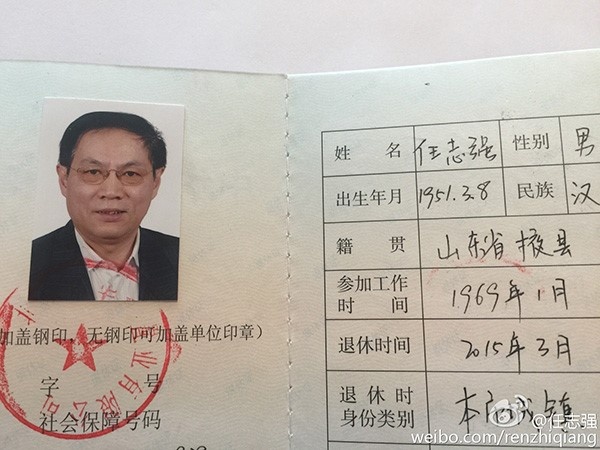 加盖钢印，无钢印可加盖单位印章）
字 号
社会保障号码
业有限公司
姓 名 任志强 性别 男
出生年月 1951.3.8 民族 汉
籍 贯 山东省掖县
参加工作
时 间 1969年1月
退休时间 2015年3月
退 休 时
身份类别 本
城镇
@任志强
weibo.com/renzhiqiang